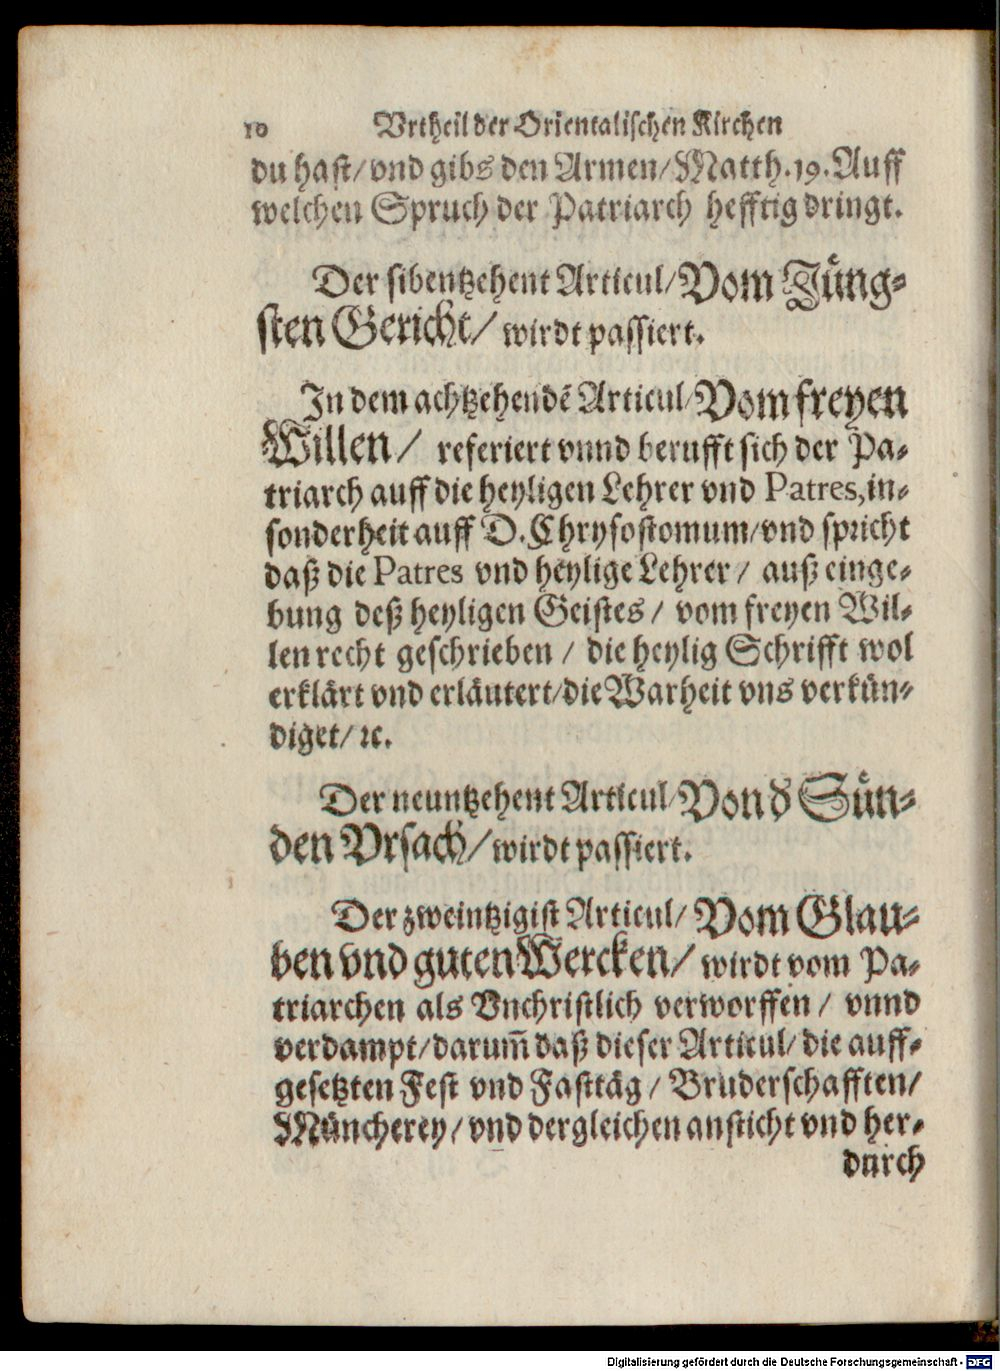 10 Vrtheil der Orientalischen Kirchen
du hast/ vnd gibs den Armen/ Matth. 19. Auff
welchen Spruch der Patriarch hefftig dringt.
Der sibentzehent Articul/ Vom Jüng-
sten Gericht/ wirdt passiert.
In dem achtzehendẽ Articul/ Vom freyen
Willen/ referiert vnnd berufft sich der Pa-
triarch auff die heyligen Lehrer vnd Patres, in-
sonderheit auff D. Chrysostomum/ vnd spricht
daß die Patres vnd heylige Lehrer/ auß einge-
bung deß heyligen Geistes/ vom freyen Wil-
len recht geschrieben/ die heylig Schrifft wol
erklärt vnd erläutert/ die Warheit vns verkün-
diget/ ꝛc.
Der neuntzehent Articul/ Von d Sün-
den Vrsach/ wirdt passiert.
Der zweintzigist Articul/ Vom Glau-
ben vnd guten Wercken/ wirdt vom Pa-
triarchen als Vnchristlich verworffen/ vnnd
verdampt/ darum̃ daß dieser Articul/ die auff-
gesetzten Fest vnd Fasttäg/ Bruderschafften/
Müncherey/ vnd dergleichen ansticht vnd her-
durch
Digitalisierung gefördert durch die Deutsche Forschungsgemeinschaft - DFG